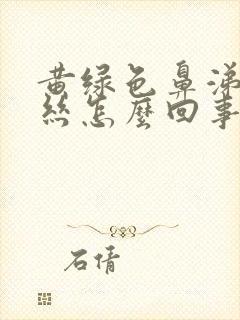 黄绿色鼻涕
丝怎麽回事
石倩